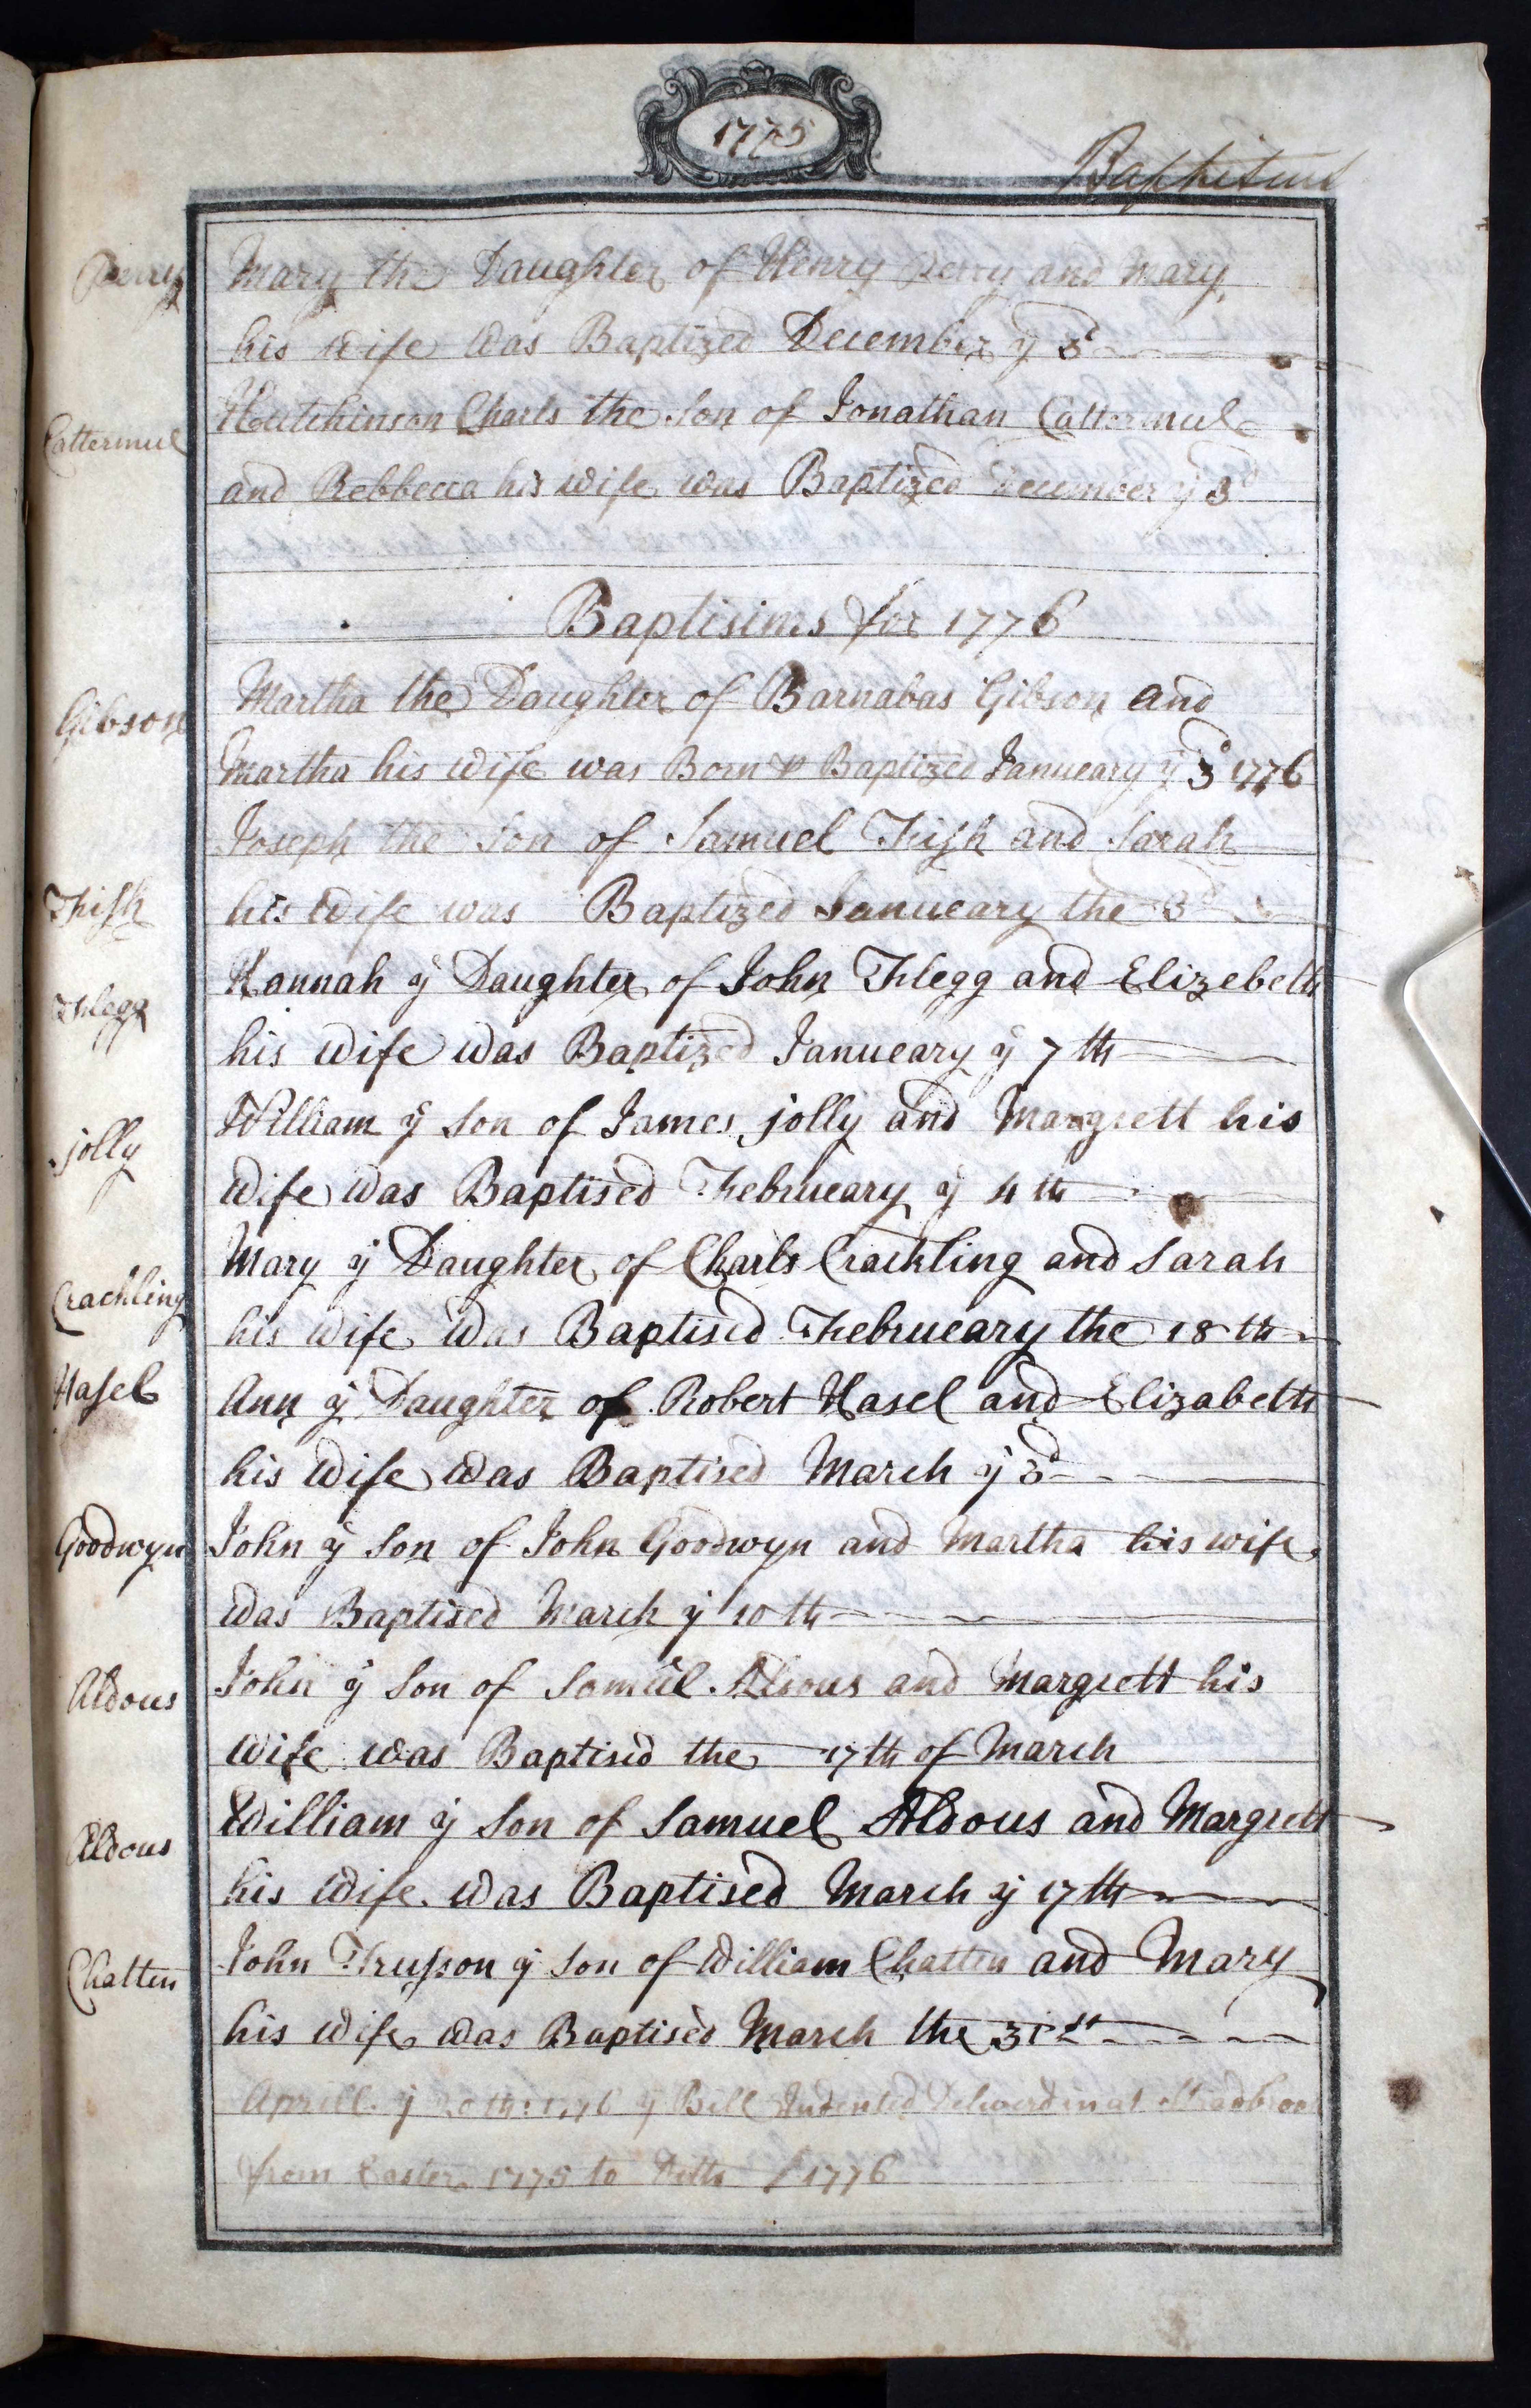 1775
Baptisims
Perry
Mary the Daughter of Henry Perry and Mary
his wife was Baptized December yͤ 3d
Cattermul
Hutchinson Charls the Son of Jonathan Cattermul
and Rebbecca his wife was Baptized December yͤ 3d
Baptisims for 1776
Gibson
Martha the Daughter of Barnabas Gibson and
Martha his wife was Born & Baptized Janueary yͤ 3d 1776
Fish
Joseph the Son of Samuel Fish and Sarah
his wife was Baptized Janueary the 3d
Flegg
Hannah yͤ Daughter of John Flegg and Elizebeth
his wife was Baptized Janueary yͤ 7th
jolly
William yͤ Son of James jolly and Margrett his
wife was Baptised Februeary yͤ 4th
Crachling
Mary yͤ Daughter of Charls Crachling and Sarah
his wife was Baptised Februeary the 18th
Hasel
Ann yͤ Daughter of Robert Hasel and Elizabeth
his wife was Baptised March yͤ 3d
Goodwyn
John yͤ Son of John Goodwyn and Martha his wife
was Baptised March yͤ 10th
Aldous
John yͤ Son of Samuel Aldous and Margrett his
wife was Baptised the 17th of March
Aldous
William yͤ Son of Samuel Aldous and Margrett
his wife was Baptised March yͤ 17th
Chatten
John Trusson yͤ Son of William Chatten and Mary
his wife was Baptised March the 31st
Aprill yͤ 20th: 1776 yͤ Bill Indented Deliverd in at Stradbrook
from Easter 1775 to Ditto 1776